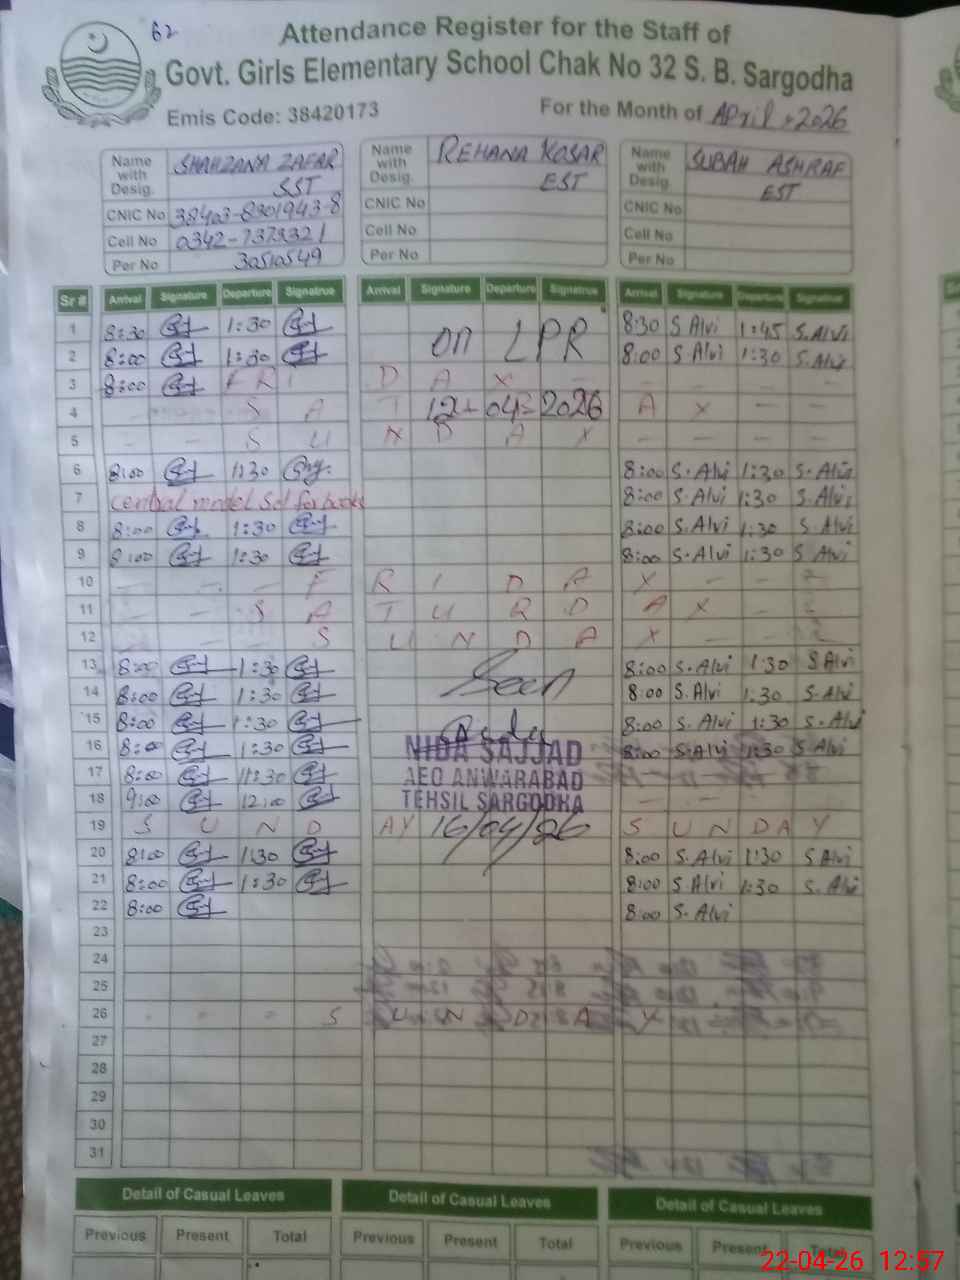 62
Attendance Register for the Staff of
Govt. Girls Elementary School Chak No 32 S. B. Sargodha
Emis Code: 38420173 For the Month of April-2026
Name with Desig. SHAHZANA ZAFAR SST Name with Desig. REHANA KOSAR EST Name with Desig. SUBAH ASHRAF EST
CNIC No 38403-8301943-8 CNIC No CNIC No
Cell No Cell No Cell No
Per No 30510549 Per No Per No
Sr # Arrival Signature Departure Signatrue Arrival Signature Departure Signatrue Arrival Signature Departure Signatrue
1 8:30 1:30 8:30 S Alvi 1:45 S.Alvi
on LPR
2 8:00 1:30 8:00 S Alvi 1:30 S.Alvi
3 8:00 F R I D A Y
4 S A T 12-04-2026 A Y - -
5 - - S U N D A Y - - - -
6 8:00 1:30 8:00 S.Alvi 1:30 S.Alvi
7 central model Scl for books 8:00 S.Alvi 1:30 S.Alvi
8 8:00 1:30 8:00 S.Alvi 1:30 S.Alvi
9 8:00 1:30 8:00 S.Alvi 1:30 S Alvi
10 - - - F R I D A Y - -
11 - - S A T U R D A Y -
12 - - S U N D A Y - -
13 8:00 1:30 8:00 S.Alvi 1:30 S Alvi
Seen
14 8:00 1:30 8:00 S.Alvi 1:30 S.Alvi
15 8:00 1:30 8:00 S.Alvi 1:30 S.Alvi
16 8:00 1:30 NIDA SAJJAD 8:00 S.Alvi 1:30 S Alvi
17 8:00 11:30 AEO ANWARABAD
18 9:00 12:00 TEHSIL SARGODHA - - -
19 S U N D AY 16/04/26 S U N D A Y
20 8:00 1:30 8:00 S.Alvi 1:30 S Alvi
21 8:00 1:30 8:00 S Alvi 1:30 S.Alvi
22 8:00 8:00 S.Alvi
23
24
25
26 - - - S U N D A Y
27
28
29
30
31
Detail of Casual Leaves Detail of Casual Leaves Detail of Casual Leaves
Previous Present Total Previous Present Total Previous Present
22-04-26 12:57